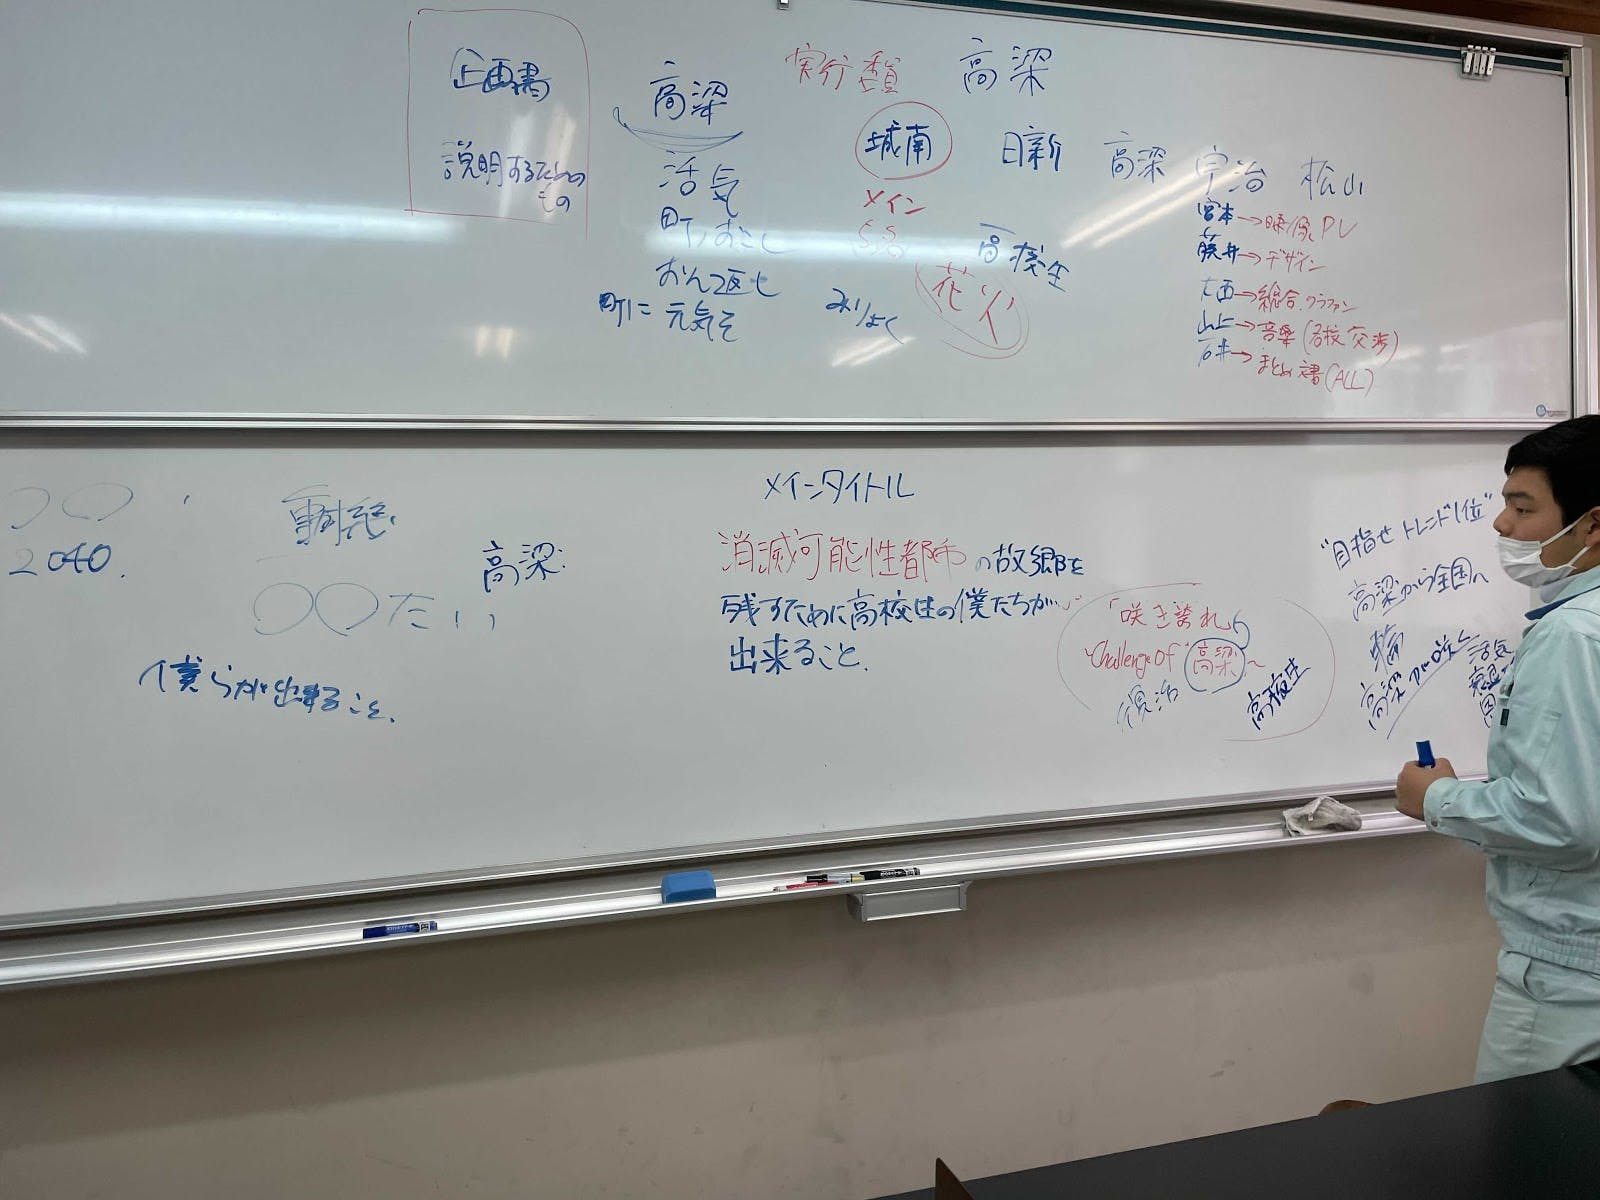 企画書
説明するための
もの
高梁
活気
町おこし
おん返し
町に元気を
みりょく
実行委員
高梁
城南
日新
高梁
宇治
松山
メイン
高校生
花火
宮本→映像、PV
藤井→デザイン
大西→総合、クラファン
山上→音楽(各校交渉)
石井→まとめ 書(ALL)
2040.
高梁
〇〇たい
僕らが出来ること、
メインタイトル
消滅可能性都市の故郷を
残すために高校生の僕たちが
出来ること、
「咲き誇れ」
~Challenge Of 高梁~
復活
高校生
"目指せトレンド1位"
高梁から全国へ
輪
高梁が咲く
活気